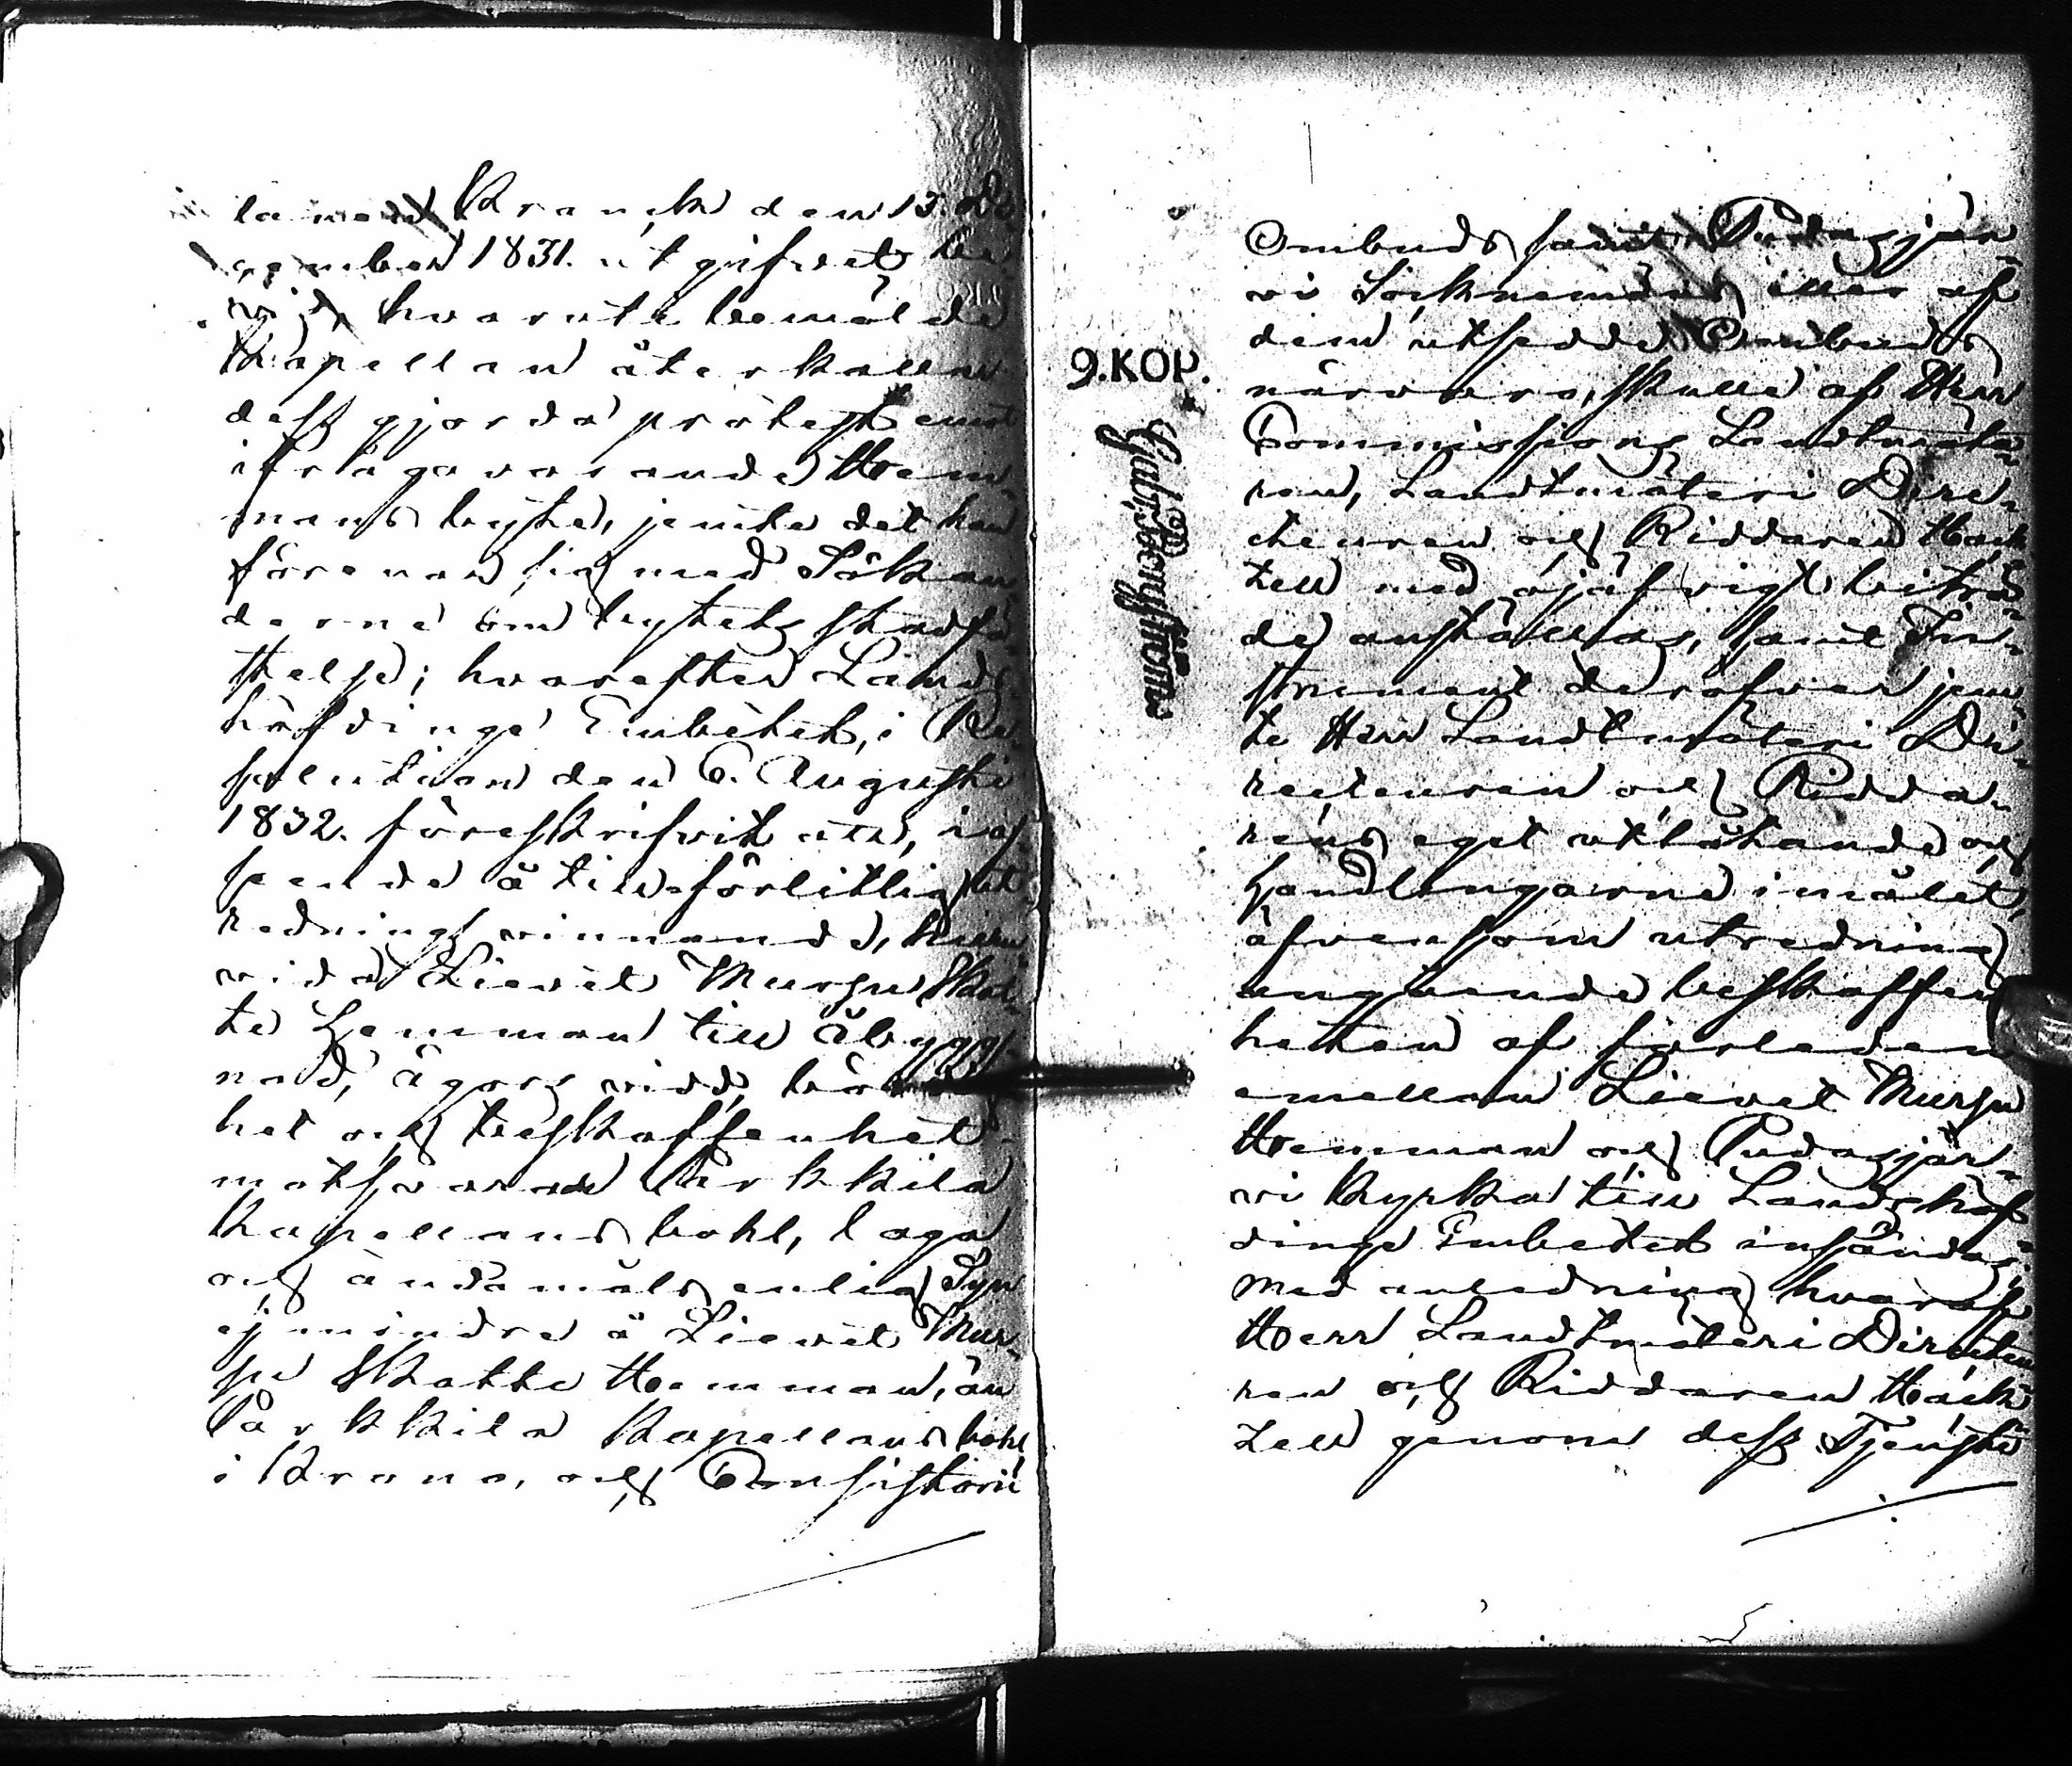 la med Kranck den 13. De-
cember 1831. utgifvet be-
vis, hvarute bemälde
Kapellan återkallar
dess gjorda protest emot
ifrågavarande Hem-
mans byte, jemte det han
förenar sig med Sökan-
derne om bytets stadfä-
stelse; hvarefter Lands-
höfdinge Embetet, i Re-
solution den 6. Augusti
1832. föreskrifvit att, i af-
seende å tillförlitlig ut-
rednings vinnande, huru-
vida Lievet Mursu Skat-
te Hemman till åbygg-
nad, ägors vidd, bör-
het och beskaffenhet
motsvarar Pärkkilä
Kapellans bohl, laga
och ändamålsenlig Syn
ej mindre å Lievet Mur-
su Skatte Hemman, än
Pärkkilä Kapellans bohl
i Krono, och Consistorii
Ombuds samt Pudasjär-
vi Socknemäns eller af
dem utsedde Ombuds
närvaro, skulle af Herr
Commissions Landtmäta-
ren, Landtmäteri Dire-
cteuren och Riddaren Häck-
zell med ojäfvigt biträ-
de anställas, samt In-
strument deröfver jem-
te Herr Landtmäteri Di-
recteuren och Ridda-
rens eget utlåtande och
Handlingarne i målet,
äfvensom utredning
angående beskaffen-
heten af farleden
emellan Lievet Mursu
Hemman och Pudasjär-
vi Kyrka till Landshöf-
dinge Embetet insändas;
med anledning hvaraf
Herr Landtmäteri Directeu-
ren och Riddaren Häck-
zell genom dess Tjenste
9. KOP.